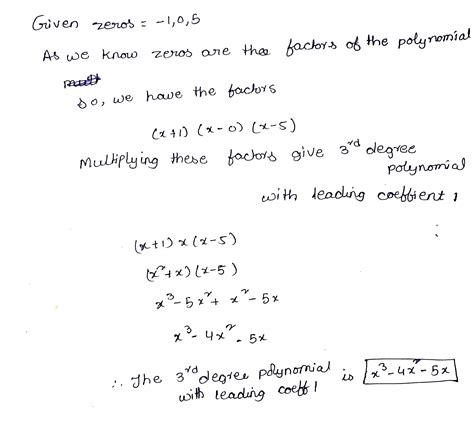 Given zeros = -1,0,5
As we know zeros are the factors of the polynomial
so, we have the factors
(x+1) (x-0) (x-5)
Multiplying these factors give 3rd degree
polynomial
with leading coeffient 1
:
(x+1) x (x-5)
(x²+x) (x-5)
x³-5x²+ x²-5x
x³-4x²-5x
∴ The 3rd degree polynomial
with leading coeff 1 is x³-4x²-5x